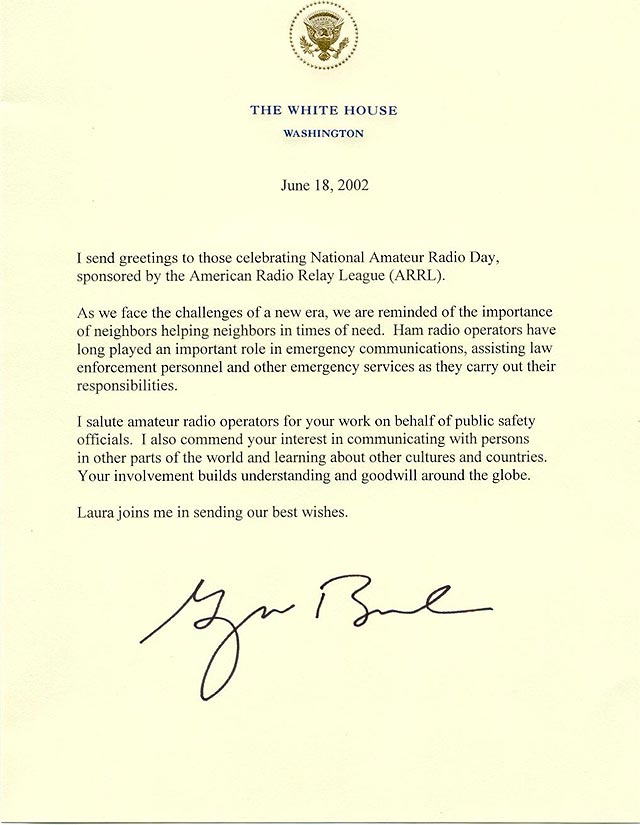 THE WHITE HOUSE
WASHINGTON
June 18, 2002
I send greetings to those celebrating National Amateur Radio Day,
sponsored by the American Radio Relay League (ARRL).
As we face the challenges of a new era, we are reminded of the importance
of neighbors helping neighbors in times of need.  Ham radio operators have
long played an important role in emergency communications, assisting law
enforcement personnel and other emergency services as they carry out their
responsibilities.
I salute amateur radio operators for your work on behalf of public safety
officials.  I also commend your interest in communicating with persons
in other parts of the world and learning about other cultures and countries.
Your involvement builds understanding and goodwill around the globe.
Laura joins me in sending our best wishes.